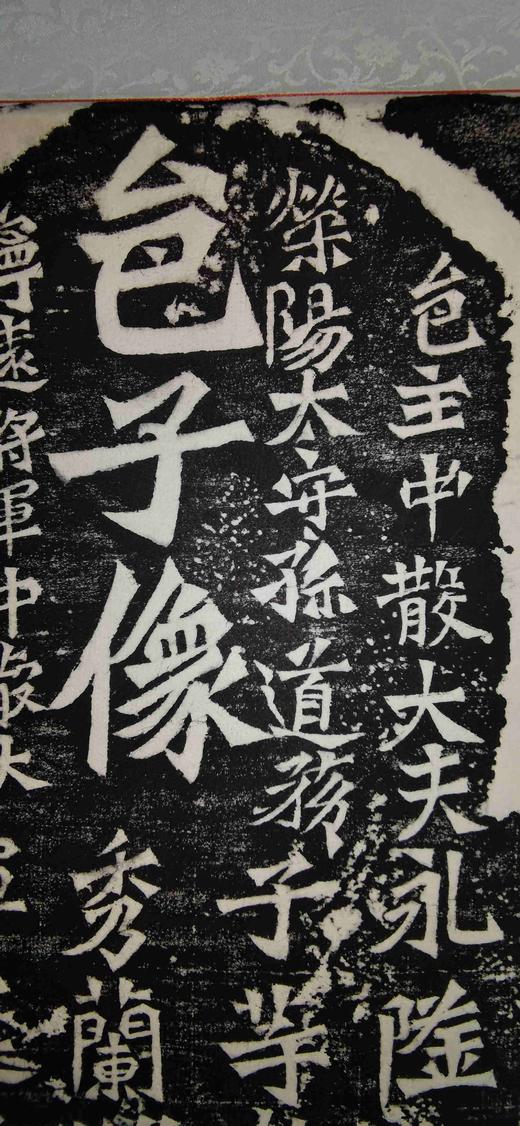 邑主中散大夫永隆
滎陽太守孫道務子等
邑子像秀蘭
寧遠將軍中散大